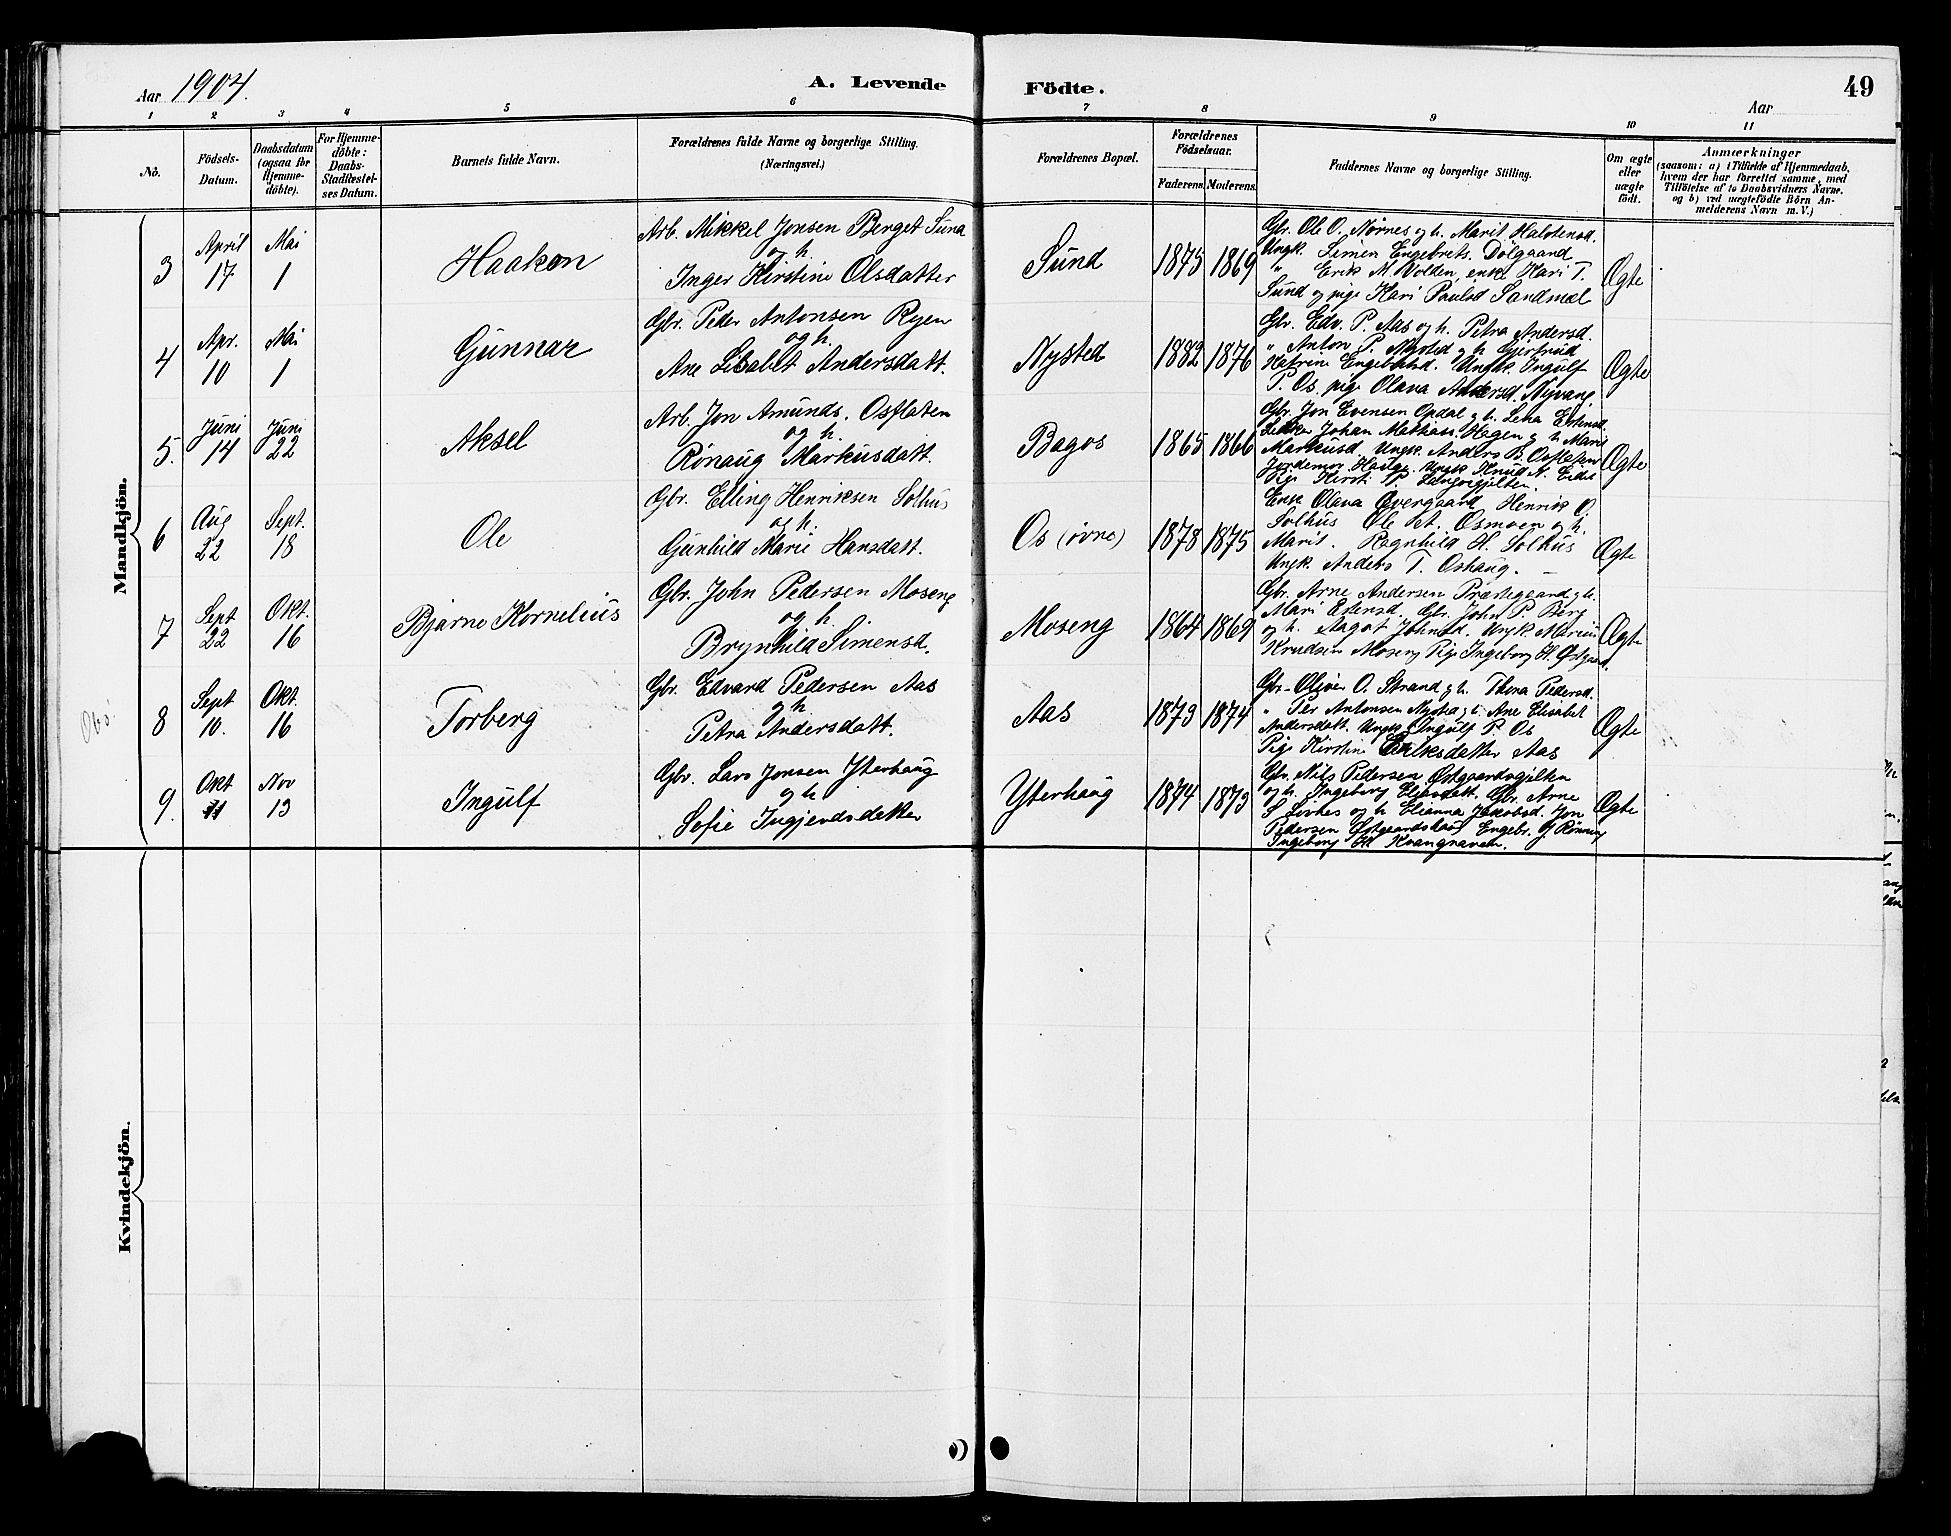 Aar 1904.
A. Levende Födte.
Aar
49
1 2 3 4 5 6 7 8 9 10 11
No.
Födsels-Datum.
Daabsdatum (ogsaa for Hjemme-döbte).
For Hjemme-döbte: Daabs-Stadfæstel-ses Datum.
Barnets fulde Navn.
Forældrenes fulde Navne og borgerlige Stilling. (Næringsvei.)
Forældrenes Bopæl.
Forældrenes Födselsaar.
Faderens. Moderens.
Faddernes Navne og borgerlige Stilling.
Om ægte eller uægte födt.
Anmærkninger
(saasom: a) i Tilfælde af Hjemmedaab,
hvem der har forrettet samme, med
Tilföielse af to Daabsvidners Navne.
og b) ved uægtefödte Börn An-
melderens Navn m. V.)
Mandkjön.
3
April 17
Mai 1
Haakon
Arb. Mikkel Jonsen Berget Sund
og h.
Inger Kirstine Olsdatter
Sund
1875 1869
Gbr. Ole O. Nørnes og h. Marit Halstensd.
Ungk. Simen Engebrets. Dølgaard
" Erik M. Volden, enke Kari T.
Sund og pige Kari Paulsd Sandmæl
Ægte
4
Apr. 10
Mai 1
Gunnar
Gbr. Peder Antonsen Ryen
og h.
Ane Lisabet Andersdatt.
Nysted
1882 1876
Gbr. Edv. P. Aas og h. Petra Andersd.
" Anton P. Nysted og h. Gjertrud
Katrine Engebretsd. Ungk. Ingulf
P. Os, pige Olava Andersd. Nyvang
Ægte
5.
Juni 14
Juni 22
Aksel
Arb. Jon Amunds. Osfloten
og h.
Rønaug Markusdatt.
Bagos
1865 1866
Gbr. Jon Evensen Opdal og h. Lena Estensd.
Johan Mathias. Hagen og h. Marit
Markusd. Ungk. Anders B. Osfloten
Jordemor Ungk Knud N. Eidet
Pige Kirsti P.
Ægte
6
Aug 22
Sept. 18
Ole
Gbr. Elling Henriksen Solhus
og h.
Gunhild Marie Hansdatt.
Os (øvre)
1878 1875
Enke Olava Overgaard Henrik O.
Solhus Ole A. Osmoen og h.
Marit. Ragnhild H. Solhus
Ungk. Anders T. Oshaug. —
Ægte
7
Sept 22
Okt. 16
Bjarne Kornelius
Gbr. John Pedersen Moseng
og h.
Brynhild Simensd.
Moseng
1864 1869
Gbr. Arne Andersen Præstegaard og h.
Mari Estensd. Gbr. John P. Berg
og h. Aagot Johnsd. Ungk. Marius
Knudsen Moseng Pige Ingeborg H. Østgaard.
Ægte
8
Sept 10.
Okt. 16
Torberg
Gbr. Edvard Pedersen Aas
og h
Petra Andersdatt.
Aas
1873 1874
Gbr. Oliver O. Strand og h. Thina Pedersd.
" Per Antonsen Nysted og h. Ane Elisabet
Andersdatt. Ungk. Ingulf P. Os
Pige Kirstine Eriksdatter Aas
Ægte
9.
Okt 11
Nov 13
Ingulf
Gbr. Lars Jonsen Yterhaug
og h
Sofie Ingjendsdatter
Yterhaug
1874 1873
Gbr. Nils Pedersen Østgaardsgjelten
og h. Ingeborg Eliasdatt. Gbr. Arne
S Livnes og h Elianna Jakobsd. Jon
Pedersen Østgaardshaug Engebr. J Rønning
Ingeborg H. Kvangraven.
Ægte
Kvindekjön.